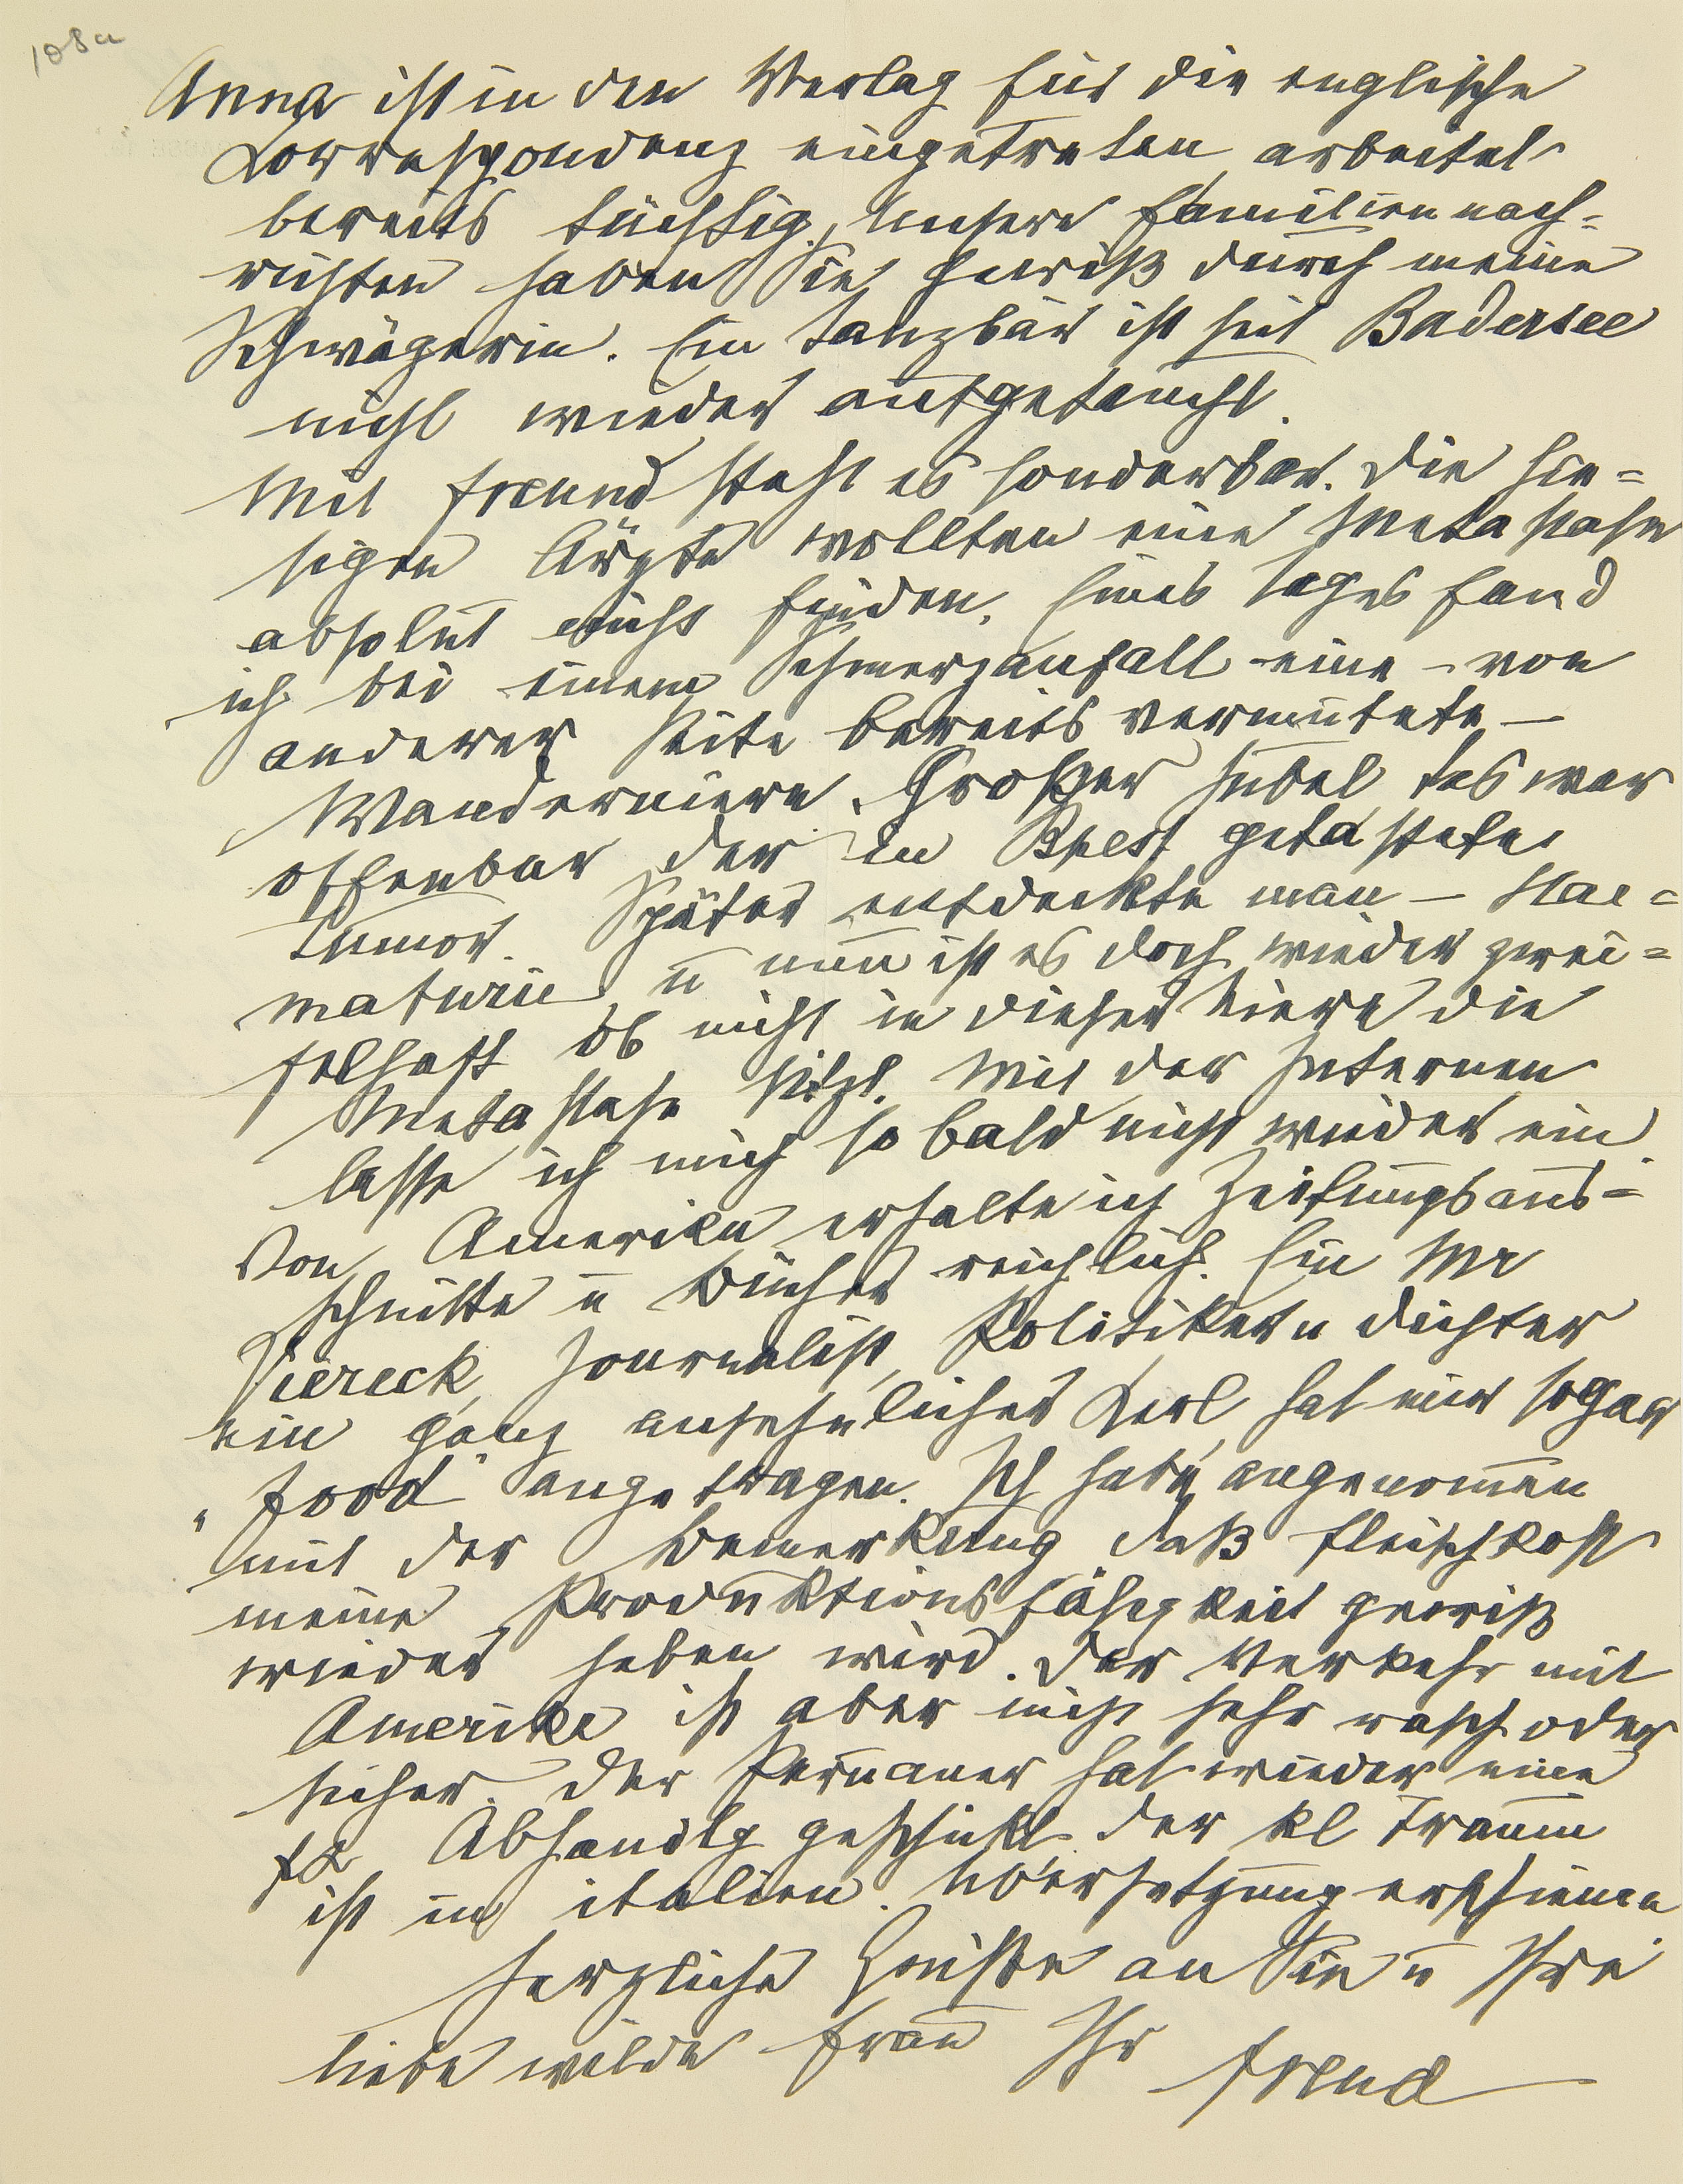 108a
Anna ist in den Verlag für die englische
Korrespondenz eingetreten, arbeitet
bereits tüchtig. Unsere Familiennach=
richten haben Sie gewiß durch meine
Schwägerin. Ein Tanzbär ist seit Badersee
nicht wieder aufgetaucht.
Mit Freund steht es sonderbar. Die hie=
sigen Ärzte wollten eine Metastase
absolut nicht finden. Eines Tages fand
ich bei einem Schmerzanfall eine – von
anderer Seite bereits vermutete –
Wanderniere. Großer Jubel, das war
offenbar der in Bpest getastete
Tumor. Später entdeckte man – Hae=
maturie, u nun ist es doch wieder zwei=
felhaft ob nicht in dieser Niere die
Metastase sitzt. Mit der Internen
lasse ich mich so bald nicht wieder ein.
Von Amerika erhalte ich Zeitungsaus=
schnitte u Bücher reichlich. Ein Mr
Viereck, Journalist, Politiker u Dichter
ein ganz ansehnlicher Kerl hat mir sogar
„food" angetragen. Ich habe angenommen
mit der Bemerkung daß Fleischkost
meine Produktionsfähigkeit gewiß
wieder heben wird. Der Verkehr mit
Amerika ist aber nicht sehr rasch oder
sicher. Der Peruaner hat wieder eine
Abhandlg geschickt der kl Traum
ist in italien. Übersetzung erschienen
Herzliche Grüße an Sie u Ihre
liebe wilde Frau Ihr Freud